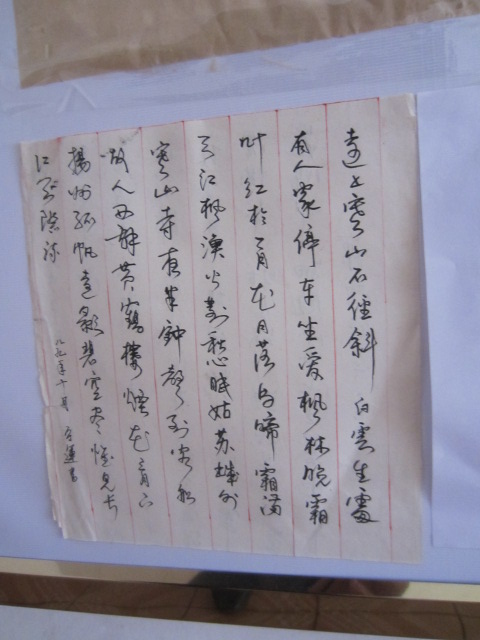 远上寒山石径斜 白雲生處
有人家停车坐爱枫林晚霜
叶红於二月花月落乌啼霜满
天江枫渔火对愁眠姑苏城外
寒山寺夜半钟声到客船
故人西辞黄鹤楼烟花三月下
揚州孤帆遠影碧空尽惟见长
江天际流
八九年十月